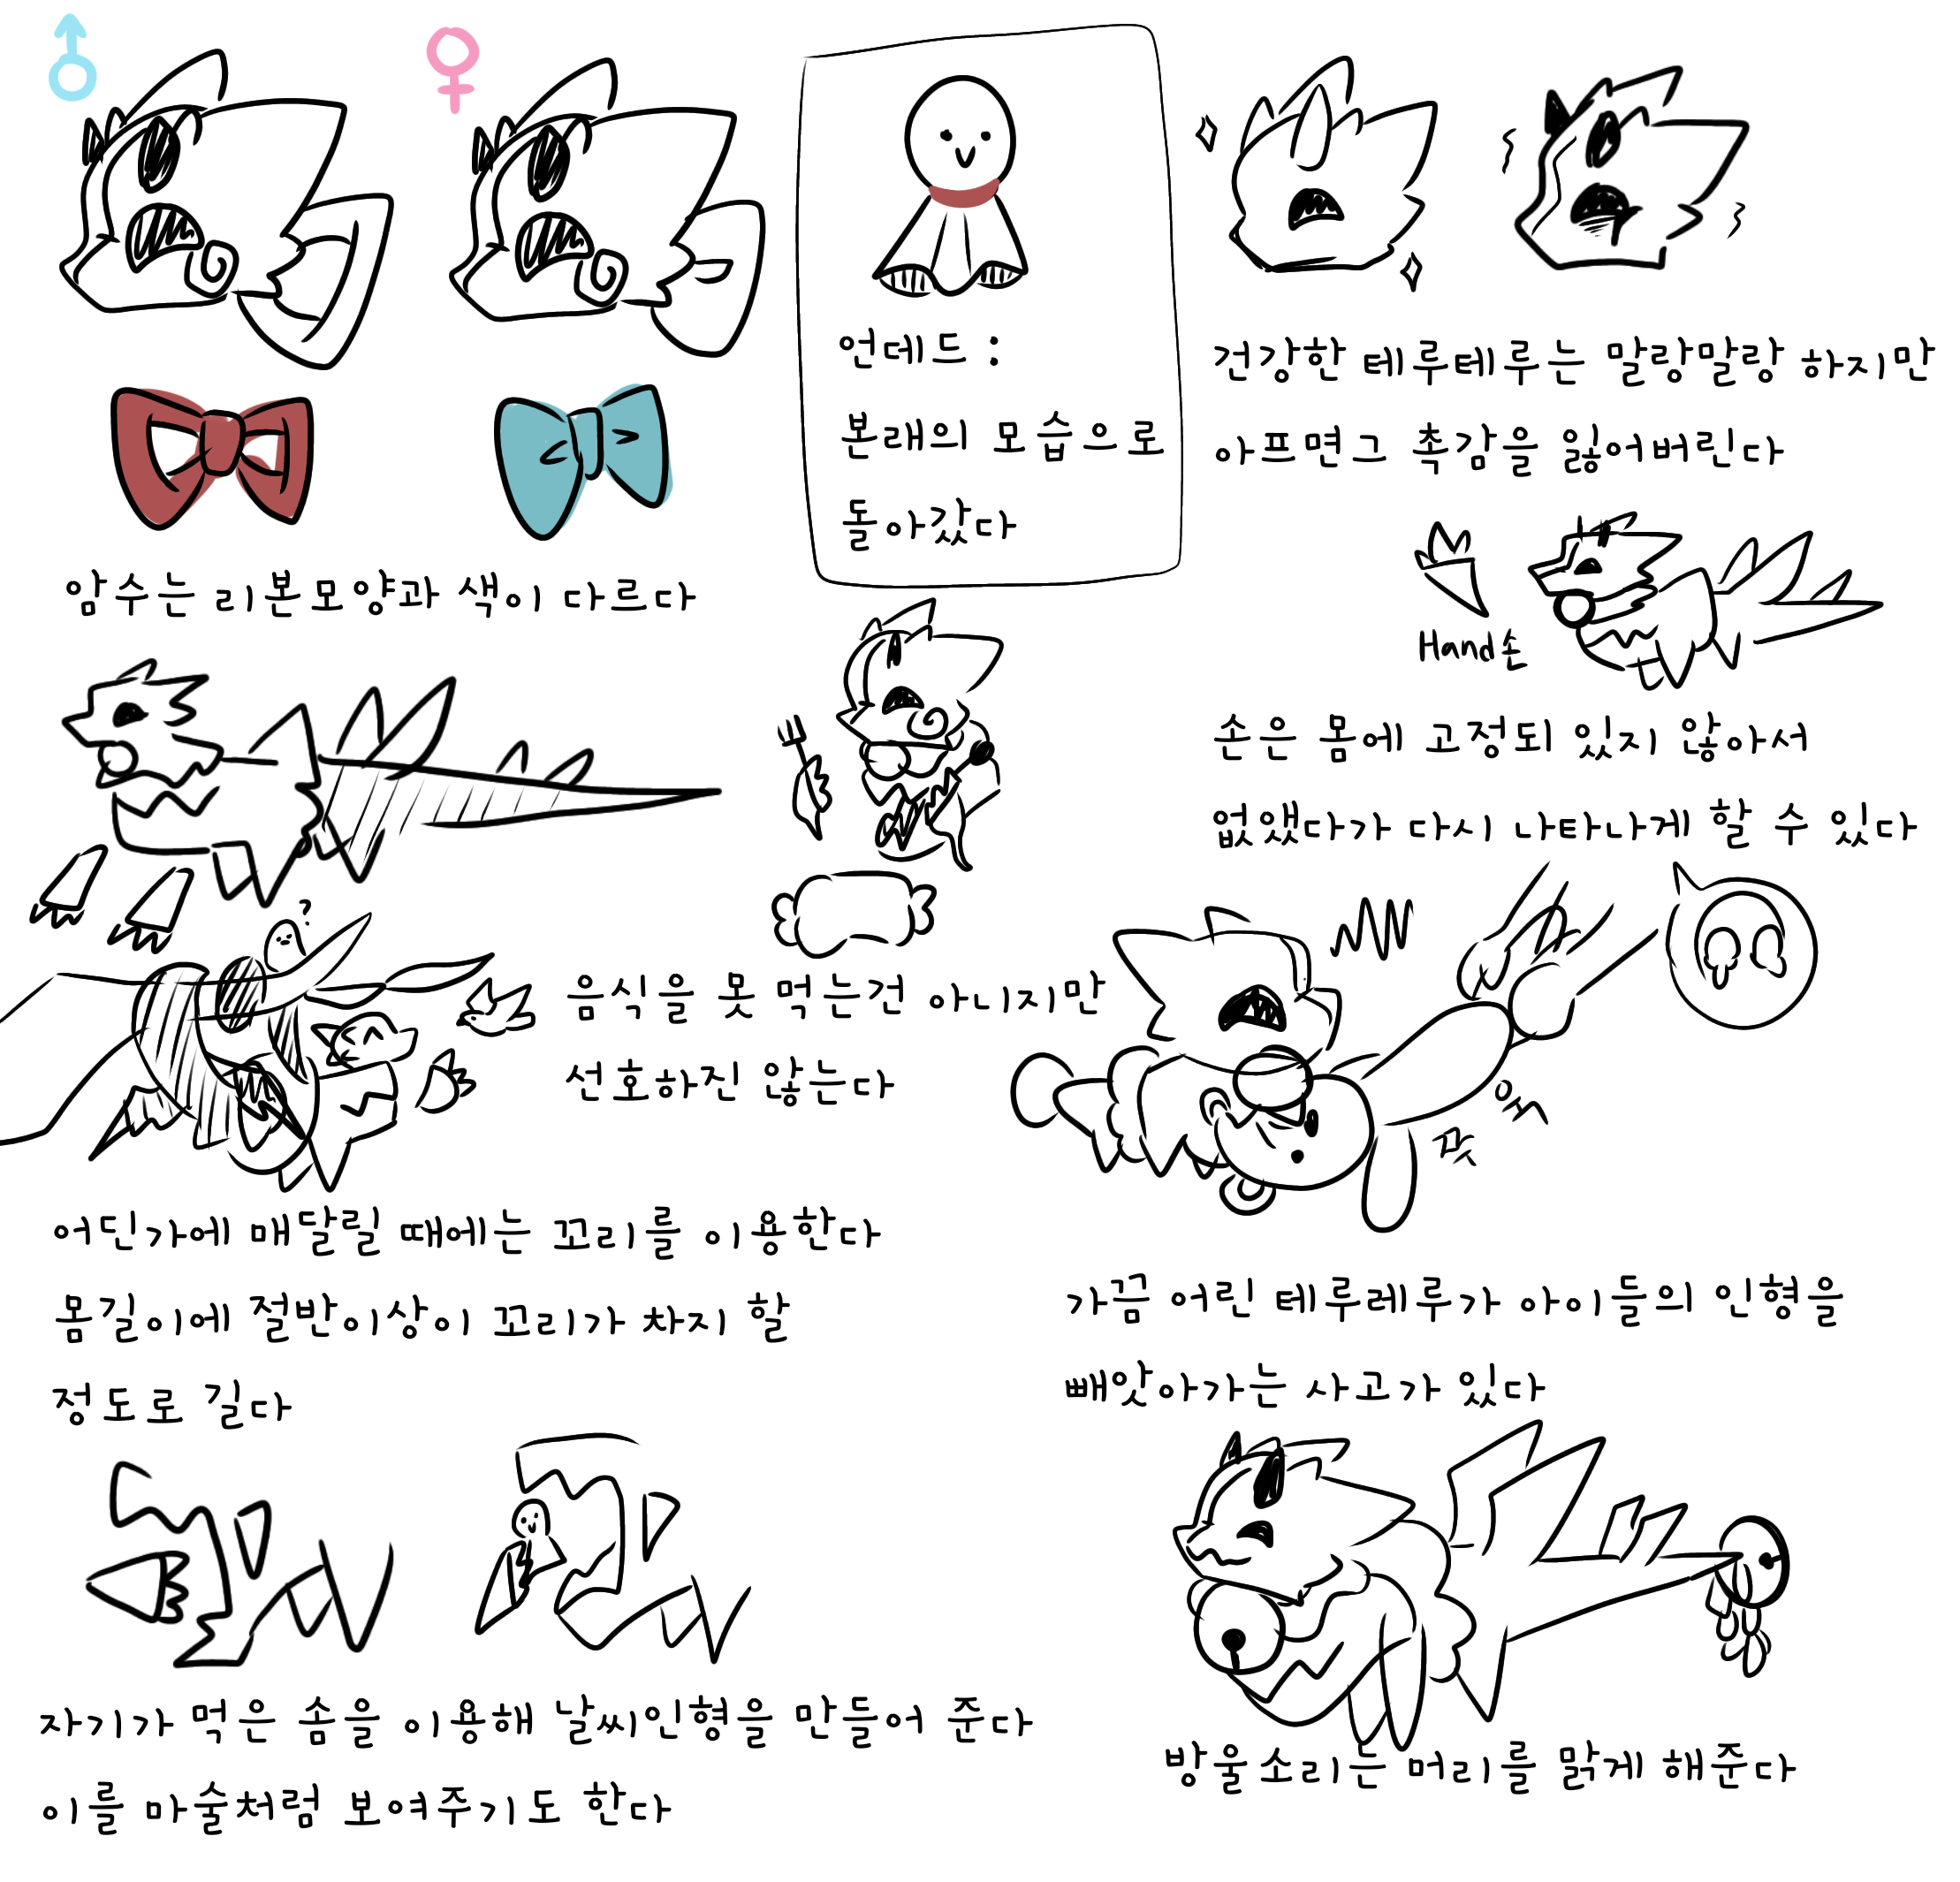 ♂
♀
언데드 :
본래의 모습으로
돌아갔다
건강한 테루테루는 말랑말랑 하지만
아프면그 촉감을 잃어버린다
암수는 리본모양과 색이 다르다
Hand손
손은 몸에 고정되 있지 않아서
없앴다가 다시 나타나게 할 수 있다
?
음식을 못 먹는건 아니지만
선호하진 않는다
어딘가에 매달릴 때에는 꼬리를 이용한다
몸길이에 절반이상이 꼬리가 차지 할
정도로 길다
가끔 어린 테루레루가 아이들의 인형을
빼앗아가는 사고가 있다
자기가 먹은 솜을 이용해 날씨인형을 만들어 준다
이를 마술처럼 보여주기도 한다
방울소리는 머리를 맑게 해준다